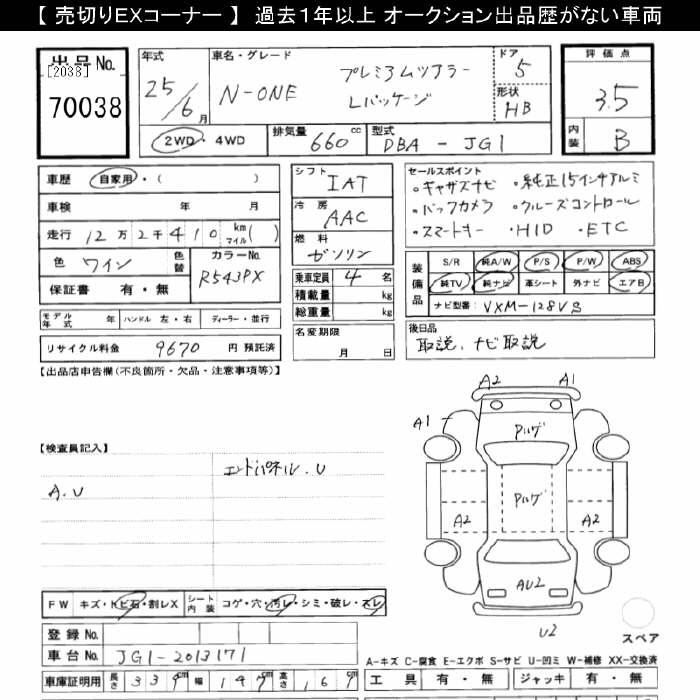 【売切りEXコーナー】 過去1年以上 オークション出品歴がない車両
出品No.
[2038]
70038
年式
25/6月
車名・グレード
N-ONE
プレミアムツアラー
Lパッケージ
ドア
5
形状
HB
評価点
3.5
内装
B
2WD・4WD
排気量 660 cc
型式 DBA-JG1
車歴 自家用・( )
車検 年 月
走行 12万2千410 km(マイル)
色 ワイン 色替
カラーNo. R543PX
保証書 有・無
モデル年式 年 ハンドル 左・右 ディーラー・並行
リサイクル料金 9670 円 預託済
シフト
IAT
冷房
AAC
燃料
ガソリン
乗車定員 4 名
積載量 kg
総重量 kg
名変期限
月 日
セールスポイント
・ギャザズナビ ・純正15インチアルミ
・バックカメラ ・クルーズコントロール
・スマートキー ・HID ・ETC
装備品
S/R 純A/W P/S P/W ABS
純TV 純ナビ 革シート 外ナビ エアB
ナビ型番: VXM-128VS
後日品
取説、ナビ取説
【出品店申告欄(不良箇所・欠品・注意事項等)】
【検査員記入】
エンドパネル.U
A.U
A2 A1
A1
Pルゲ
Pルゲ
A2 A2
AU2
U2
スペア
FW キズ・トビ石・割レX シート内装 コゲ・穴・汚レ・シミ・破レ・スレ
登録No.
車台No. JG1-2013171
車庫証明用 長さ 339 cm 幅 147 cm 高さ 161 cm
A-キズ C-腐食 E-エクボ S-サビ U-凹ミ W-補修 XX-交換済
工具 有・無 ジャッキ 有・無